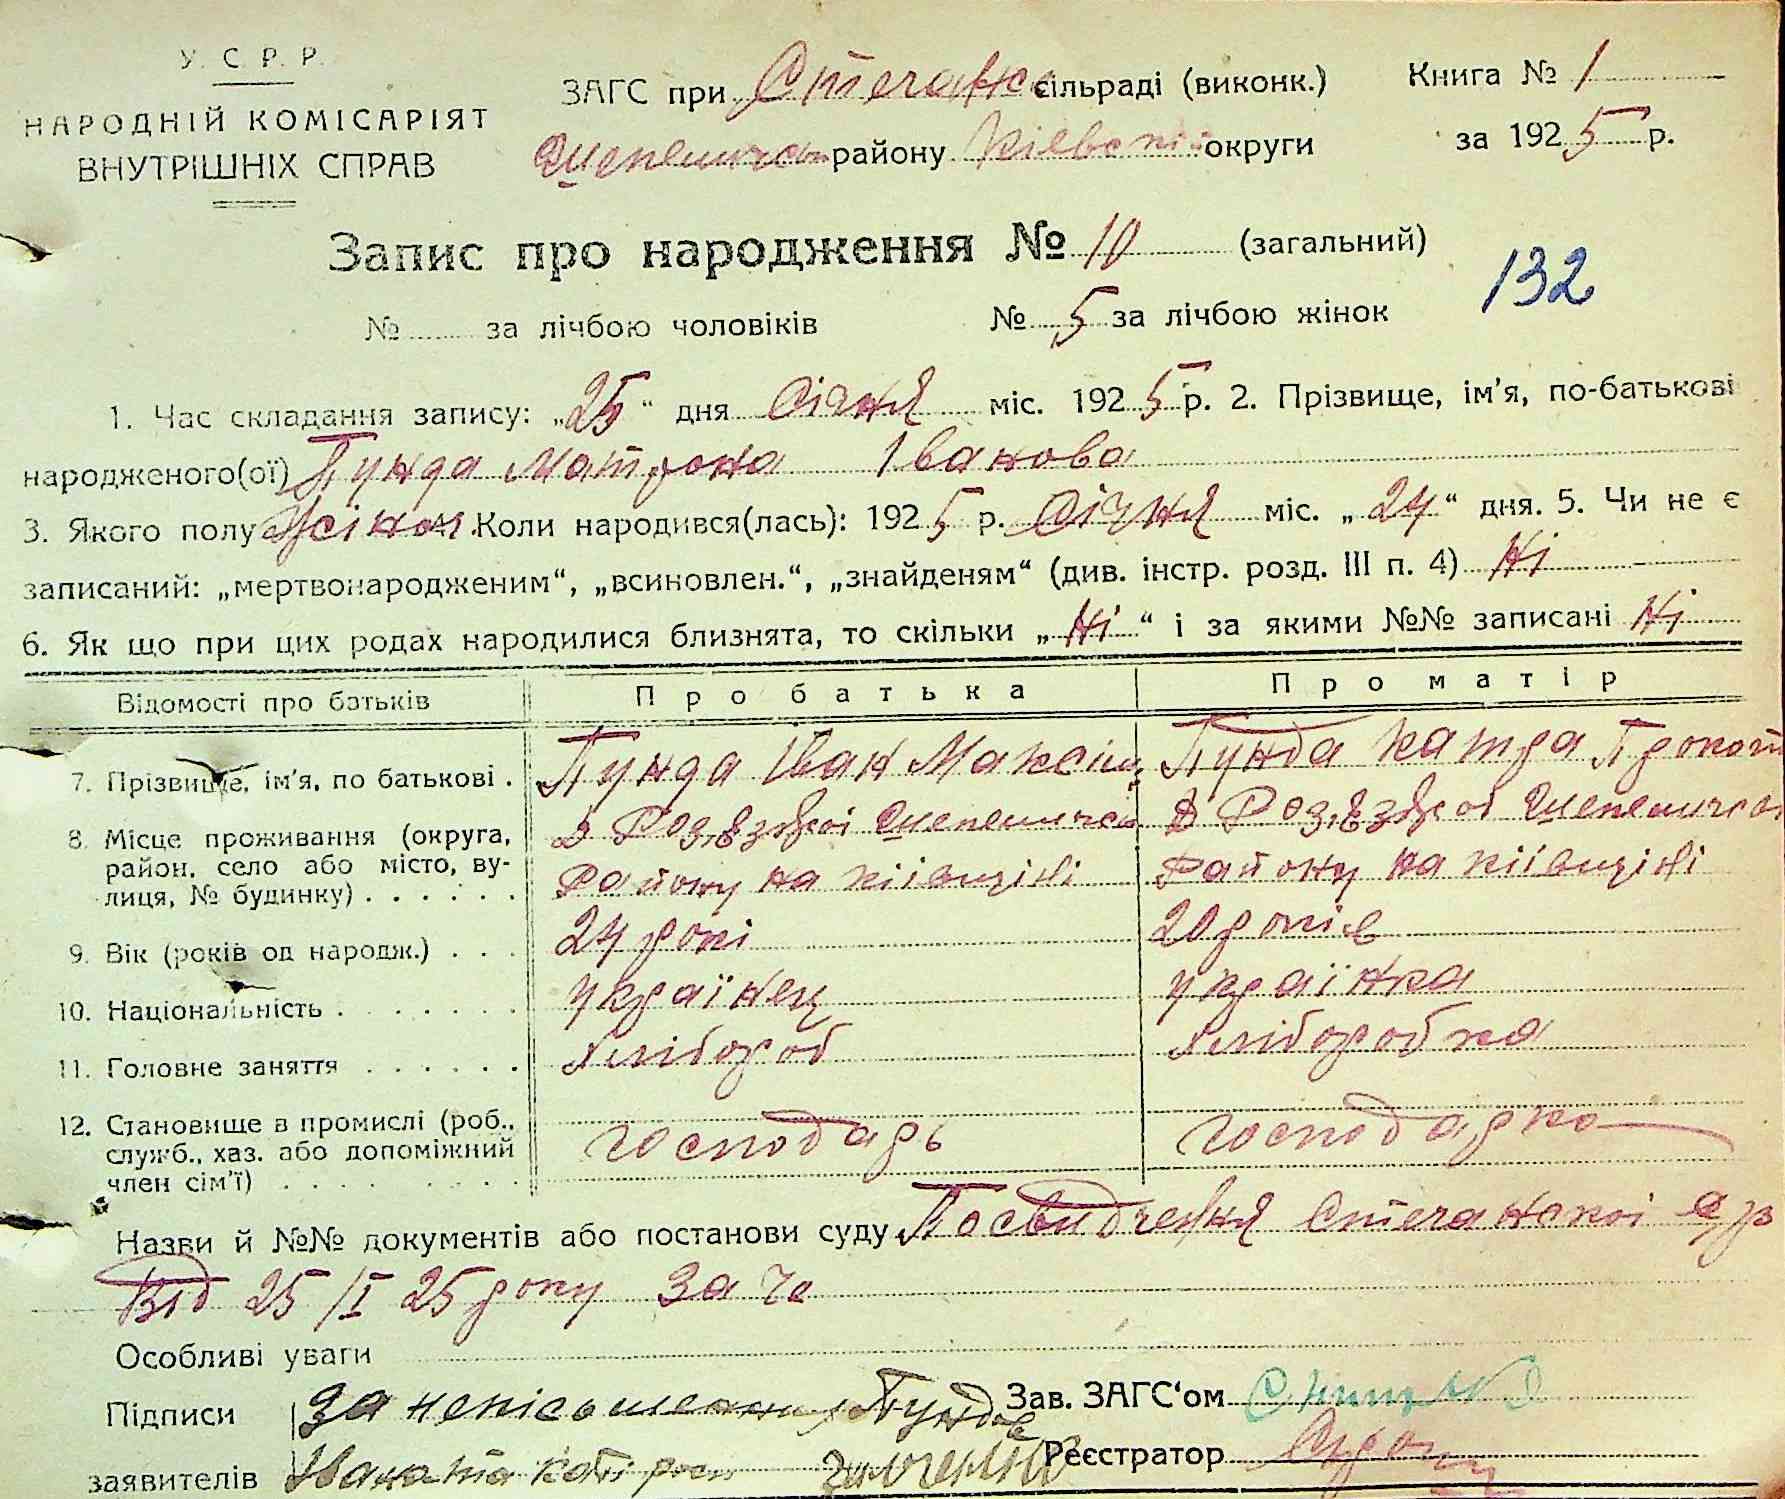 У. С. Р. Р.
НАРОДНІЙ КОМІСАРІЯТ
ВНУТРІШНІХ СПРАВ
ЗАГС при Стечанк сільраді (виконк.)
Шепелицьк району Київської округи
Книга № 1
за 1925 р.
Запис про народження № 10 (загальний)
132
№ за лічбою чоловіків № 5 за лічбою жінок
1. Час складання запису: „25“ дня Січня міс. 1925 р. 2. Прізвище, ім'я, по-батькові
народженого(ої) Пунда Матрона Іванова
3. Якого полу жіноч. Коли народився(лась): 1925 р. Січня міс. „24“ дня. 5. Чи не є
записаний: „мертвонародженим“, „всиновлен.“, „знайденям“ (див. інстр. розд. III п. 4) Ні
6. Як що при цих родах народилися близнята, то скільки „Ні“ і за якими №№ записані Ні
Відомості про батьків Про батька Про матір
7. Прізвище, ім'я, по батькові . Пунда Іван Максім Пунда Катря Прокоп
8. Місце проживання (округа, район, село або місто, вулиця, № будинку) . . . . . .
Д Розʼѣзджої Шепелицьк Д Розʼѣзджої Шепелицьк
Району на Київщині Району на Київщині
9. Вік (років од народж.) . . . 24 рокі 20 років
10. Національність . . . . . . . українец українка
11. Головне заняття . . . . . . хлібороб хліборобка
12. Становище в промислі (роб., служб., хаз. або допоміжний член сім'ї) . . . . . . . . . господарь господарка
Назви й №№ документів або постанови суду Посвидчення Стечанской с/р
Від 25/I 25 року за ч
Особливі уваги
Підписи За непісьменних Пундів Зав. ЗАГС'ом
заявителів Івана та Катрі Реєстратор